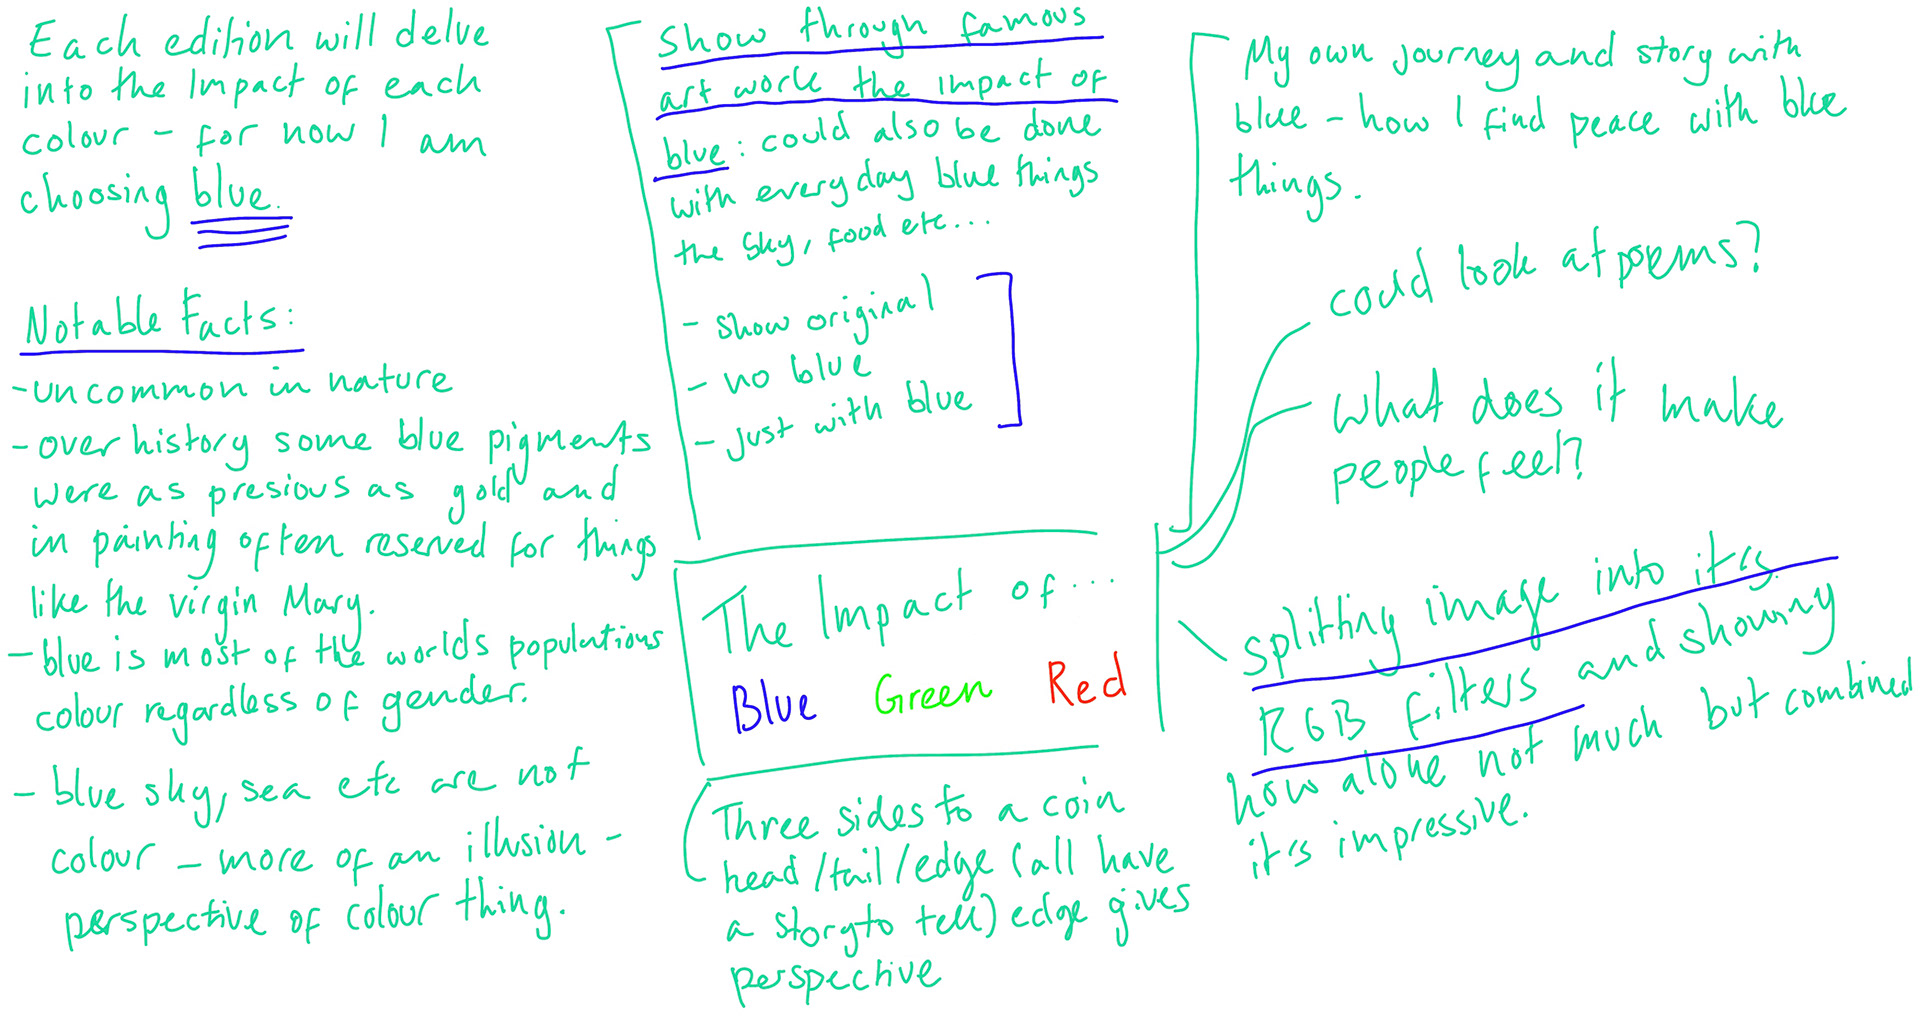 Each edition will delve
into the Impact of each
colour - for now I am
choosing blue.
Notable Facts:
- uncommon in nature
- over history some blue pigments
were as presious as gold and
in painting often reserved for things
like the virgin Mary.
- blue is most of the worlds populations
colour regardless of gender.
- blue sky, sea etc are not
colour - more of an illusion -
perspective of colour thing.
Show through famous
art work the impact of
blue: could also be done
with everyday blue things
the sky, food etc...
- show original
- no blue
- just with blue
The Impact of...
Blue Green Red
Three sides to a coin
head/tail/edge (all have
a story to tell) edge gives
perspective
My own journey and story with
blue - how I find peace with blue
things.
could look at poems?
What does it make
people feel?
splitting image into it's
RGB filters and showing
how alone not much but combined
it's impressive.